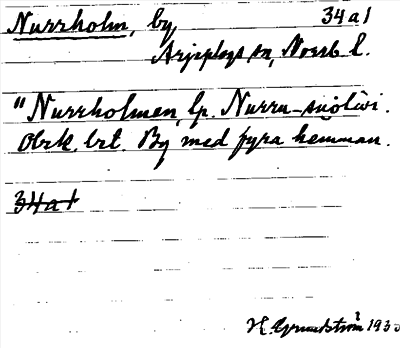 Nurrholm, by 34a1
Arjeplogs sn, Norrb l.
"Nurrholmen, lp. Nurru-suolui.
Obrk. brt. By med fyra hemman.
34a1
H. Grundström 193